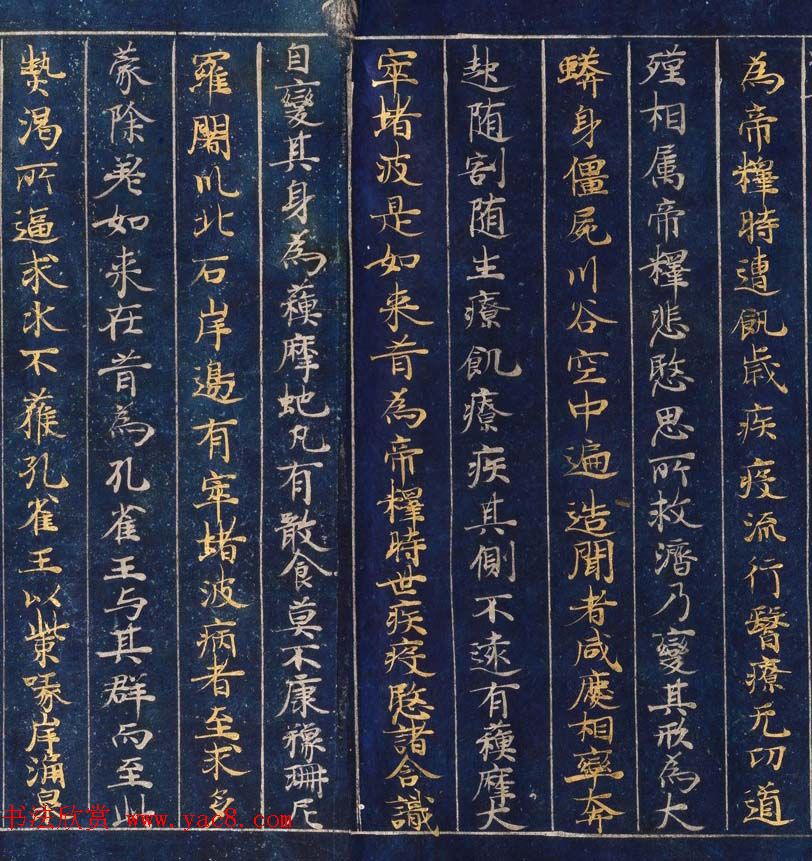 為帝釋時遭飢歲疾疫流行醫療无功道
殣相属帝釋悲愍思所救濟乃變其形為大
蟒身僵屍川谷空中遍造聞者咸慶相率奔
赴随割随生療飢療疾其側不遠有蘓摩大
窂堵波是如来昔為帝釋時世疾疫愍諸含識
自變其身為蘓摩虵凡有噉食莫不康豫珊尼
羅闍川北石岸邊有窂堵波病者至求多
蒙除差如来在昔為孔雀王与其群而至此
熱渴所逼求水不獲孔雀王以觜啄岸涌泉
书法欣赏 www.yac8.com